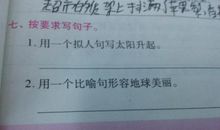 架上挂满
七、按要求写句子。
1. 用一个拟人句写太阳升起。
2. 用一个比喻句形容地球美丽。